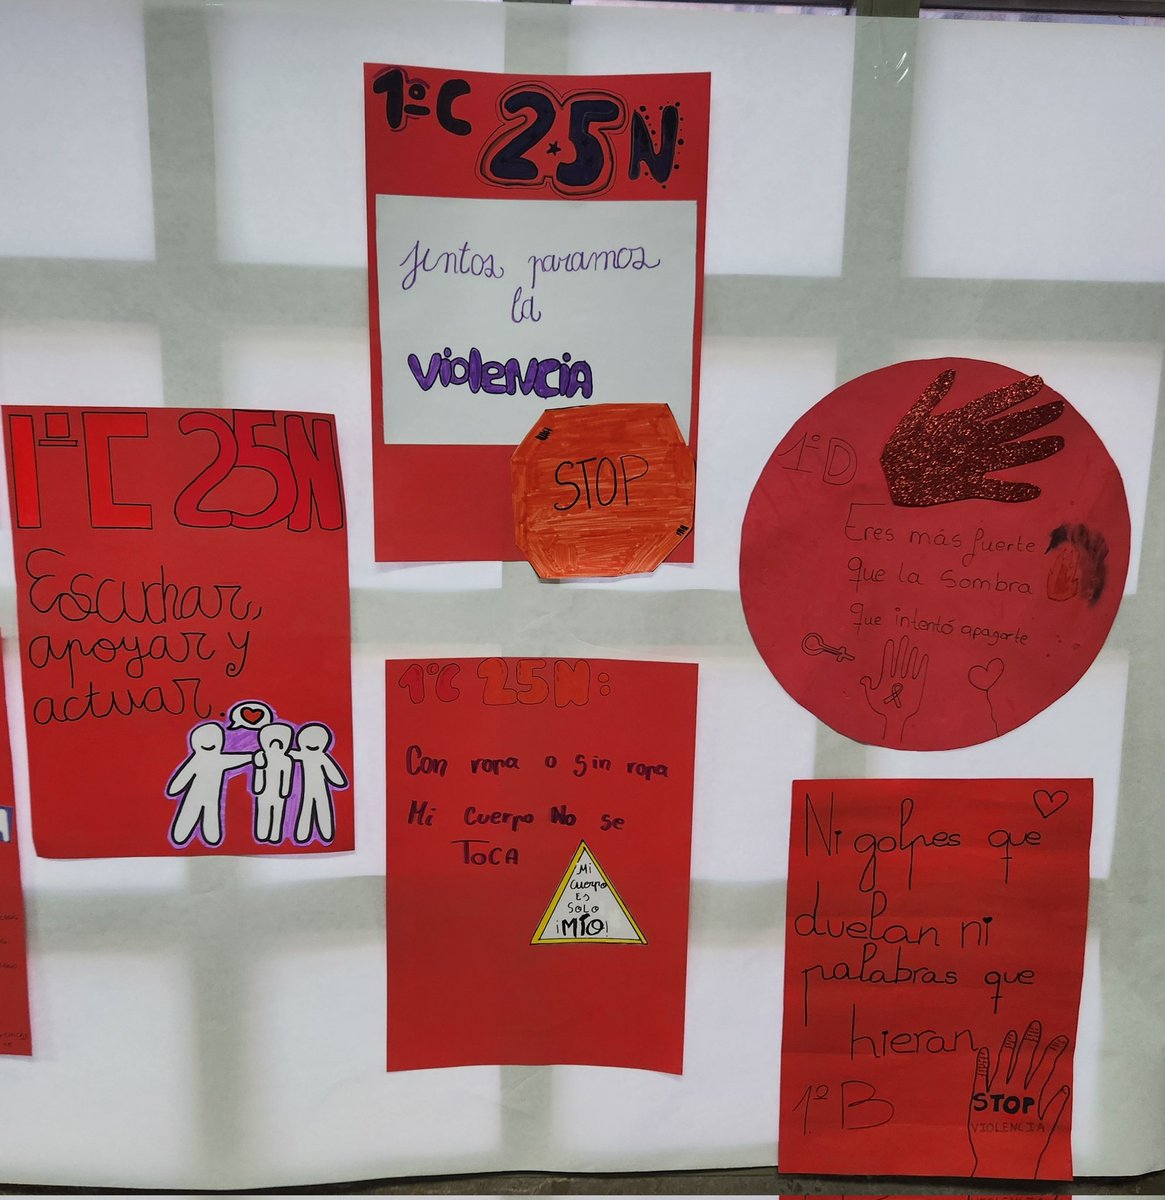 1ºC 25N
Juntos paramos
la
violencia
STOP
1ºC 25N
Escuchar,
apoyar y
actuar.
1ºC 25N:
Con ropa o sin ropa
Mi cuerpo No se
TOCA
Mi
cuerpo
ES
SOLO
¡MÍO!
1ºD
Eres más fuerte
que la sombra
que intentó apagarte
Ni golpes que
duelan ni
palabras que
hieran
1ºB
STOP
VIOLENCIA